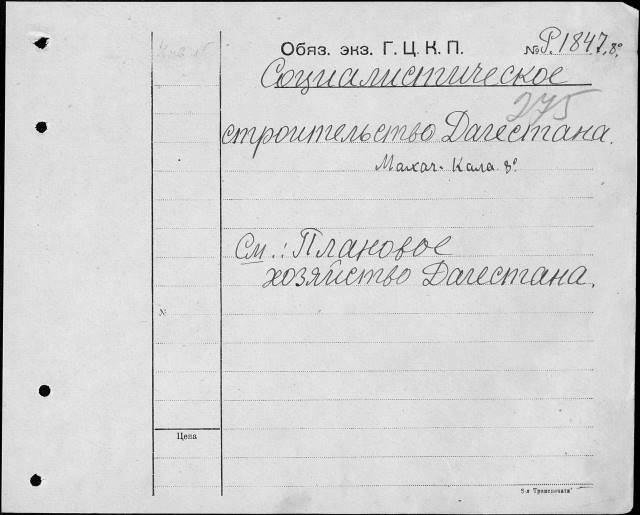 Обяз. экз. Г. Ц. К. П. № Р.1847, 8°
Социалистическое
275
строительство Дагестана.
Махач-Кала 8°
См.: Плановое
хозяйство Дагестана.
№
Цена